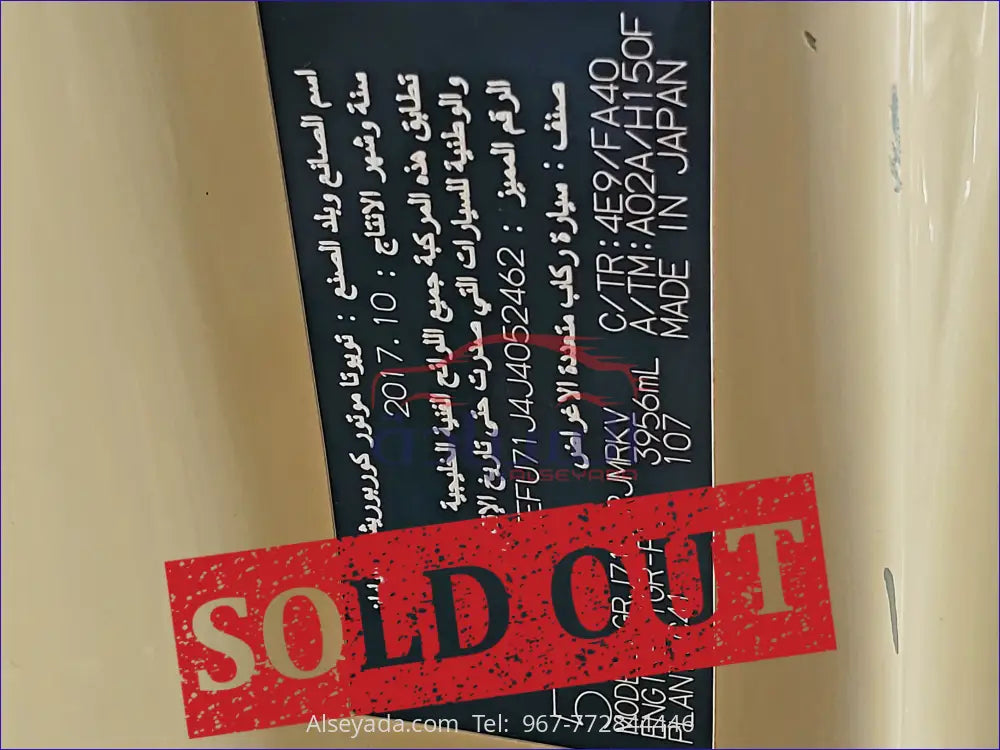 اسم الصانع وبلد الصنع : تويوتا موتور
سنة وشهر الانتاج : 2017.10
تطابق هذه المركبة جميع اللوائح الفنية الخليجية
والوطنية للسيارات التي صدرت حتى تاريخ
الرقم المميز : FU71J4J4052462
صنف : سيارة ركاب متعددة الاغراض
GRJ71 JMRKV C/TR:4E9/FA40
3956mL A/TM:A02A/H150F
107 MADE IN JAPAN
ALSEYADA
SOLD OUT
Alseyada.com Tel: 967-772841446